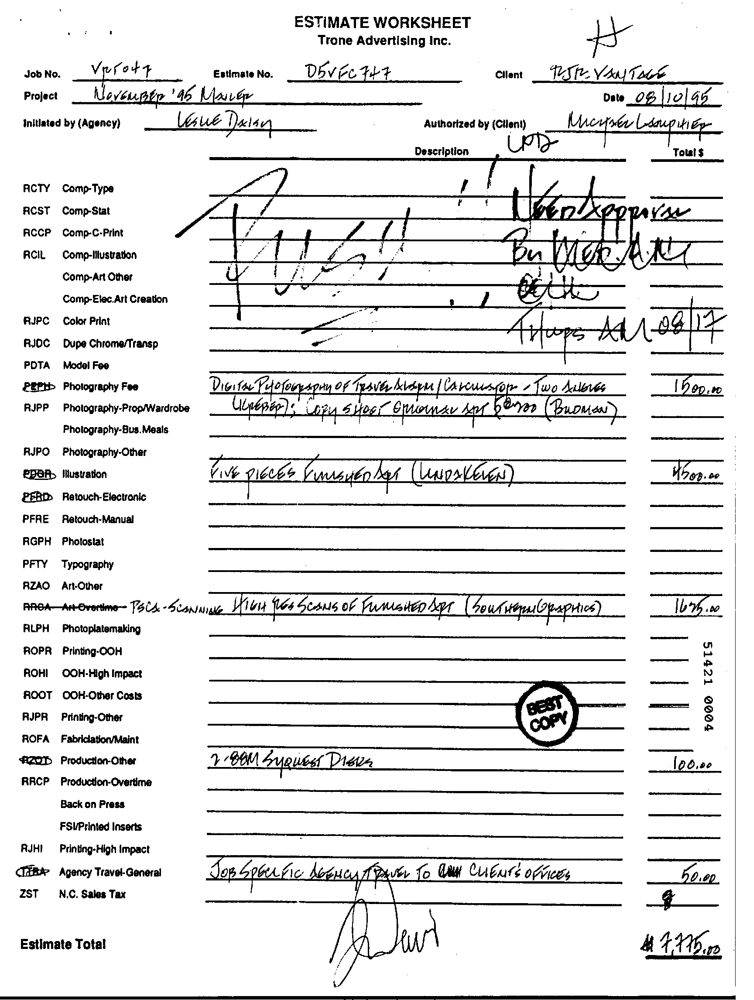 ESTIMATE WORKSHEET
Trone Advertising Inc.
Job No. Estimate No. D5VFC747 Client RJR-VANTAGE
Project NOVEMBER '95 MAILER Date 08/10/95
Initiated by (Agency) LESLIE DAISY Authorized by (Client) MICHAEL
Description Total $
RCTY Comp-Type
RCST Comp-Stat NEED APPROVAL
RCCP Comp-C-Print
RCIL Comp-Illustration RUSH!! BY WED. AM
Comp-Art Other
Comp-Elec.Art Creation
RJPC Color Print THURS AM 08/17
RJDC Dupe Chrome/Transp
PDTA Model Fee
PEPH Photography Fee DIGITAL PHOTOGRAPHY OF TRAVEL ALARM/CALCULATOR - TWO ANGLES 1500.00
RJPP Photography-Prop/Wardrobe COPY SHOOT ORIGINAL ART (BUDMAN)
Photography-Bus.Meals
RJPO Photography-Other
Illustration FIVE PIECES FINISHED ART 4500.00
PFRD Retouch-Electronic
PFRE Retouch-Manual
RGPH Photostat
PFTY Typography
RZAO Art-Other
RROA Art-Overtime PSCA-SCANNING HIGH RES SCANS OF FINISHED ART (SOUTHERN GRAPHICS) 1625.00
RLPH Photoplatemaking
ROPR Printing-OOH
ROHI OOH-High Impact
ROOT OOH-Other Costs
RJPR Printing-Other
ROFA Fabriciation/Maint
RZOT Production-Other 2-88M SYQUEST DISKS 100.00
RRCP Production-Overtime
Back on Press
FSI/Printed Inserts
RJHI Printing-High Impact
Agency Travel-General JOB SPECIFIC AGENCY TRAVEL TO CLIENT'S OFFICES 50.00
ZST N.C. Sales Tax
Estimate Total $7,775.00
BEST
COPY
51421 0004